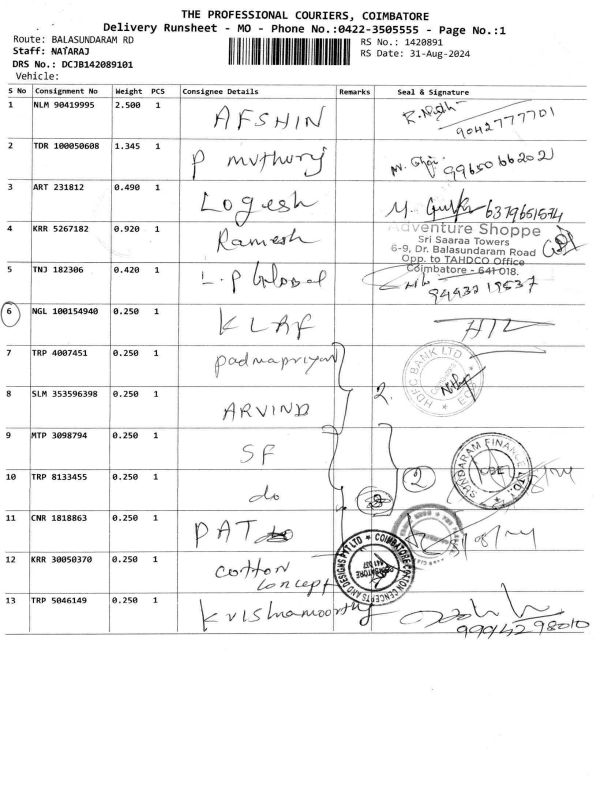 THE PROFESSIONAL COURIERS, COIMBATORE
Delivery Runsheet - MO - Phone No.:0422-3505555 - Page No.:1
Route: BALASUNDARAM RD
RS No.: 1420891
Staff: NATARAJ
RS Date: 31-Aug-2024
DRS No.: DCJB142089101
Vehicle:
S No Consignment No Weight PCS Consignee Details Remarks Seal & Signature
1 NLM 90419995 2.500 1 AFSHIN
9042777701
2 TDR 100050608 1.345 1 P 9965066202
3 ART 231812 0.490 1 Logesh 6379651574
4 KRR 5267182 0.920 1 Ramesh
Adventure Shoppe
Sri Saaraa Towers
6-9, Dr. Balasundaram Road
Opp. to TAHDCO Office
Coimbatore - 641 018.
5 TNJ 182306 0.420 1
6 NGL 100154940 0.250 1
7 TRP 4007451 0.250 1 Padmapriya
HDFC BANK LTD
8 SLM 353596398 0.250 1 ARVIND 2.
9 MTP 3098794 0.250 1 SF
SUNDARAM FINANCE LTD
10 TRP 8133455 0.250 1 do 2
11 CNR 1818863 0.250 1 PAT
12 KRR 30050370 0.250 1 Cotton
Concept
COIMBATORE COTTON CONCEPTS AND DESIGNS PVT LTD
13 TRP 5046149 0.250 1 Krishnamoorthy
9994298010